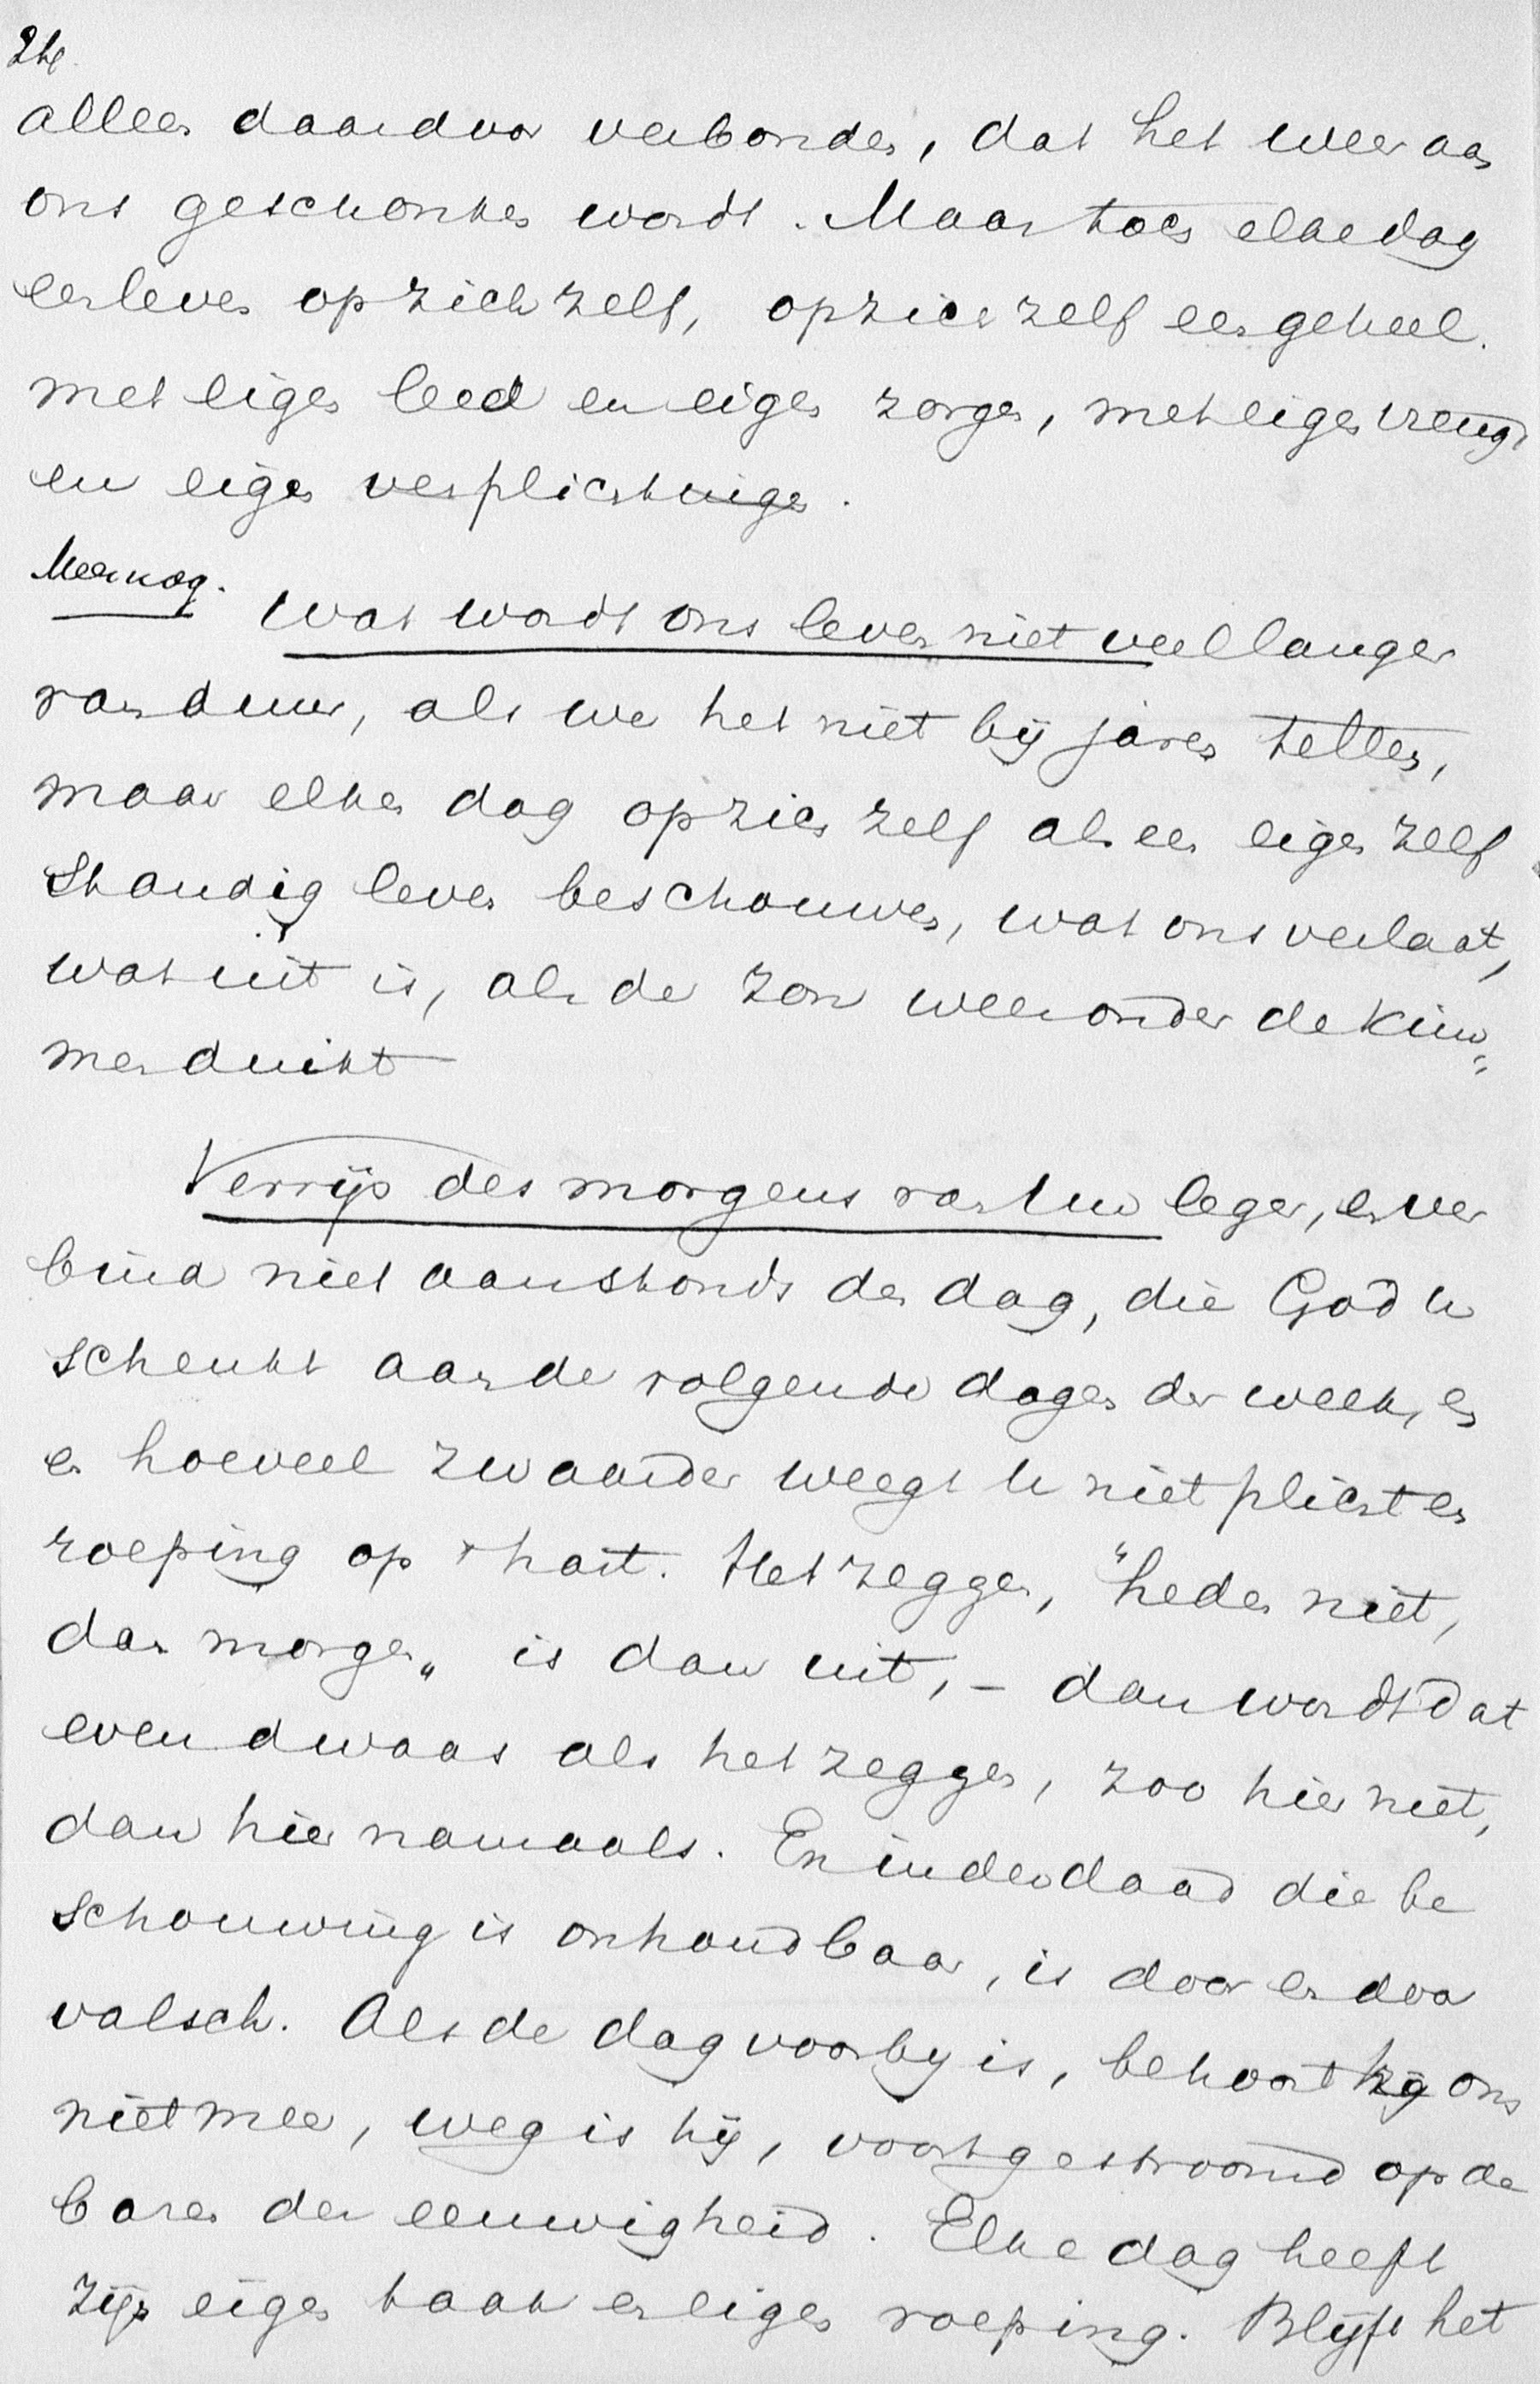 24.
alleen daardoor verbonden, dat het weer aan
ons geschonken wordt. Maar toch elke dag
een leven op zich zelf, op zich zelf een geheel.
met eigen leed en eigen zorgen, met eigen vreugd
en eigen verplichtingen.
Meer nog.
Wat wordt ons leven niet veel langer
van duur, als we het niet bij jaren tellen,
maar elken dag op zich zelf als een eigen zelf
standig leven beschouwen, wat ons verlaat,
wat uit is, als de zon weer onder de kim=
men duikt
Verrijs des morgens van Uw leger, en ver
bind niet aanstonds den dag, die God U
schenkt aan de volgende dagen der week, en
en hoeveel zwaarder weegt U niet plicht en
roeping op 't hart. Het zeggen, "heden niet,
dan morgen„ is dan uit, - dan wordt dat
even dwaas als het zeggen, zoo hier niet,
dan hier namaals. En inderdaad die be
schouwing is onhoudbaar, is door en door
valsch. Als de dag voorby is, behoort hij ons
niet meer, weg is hij, voortgestroomd op de
baren der eeuwigheid. Elke dag heeft
zijn eigen taak en eigen roeping. Blijft het